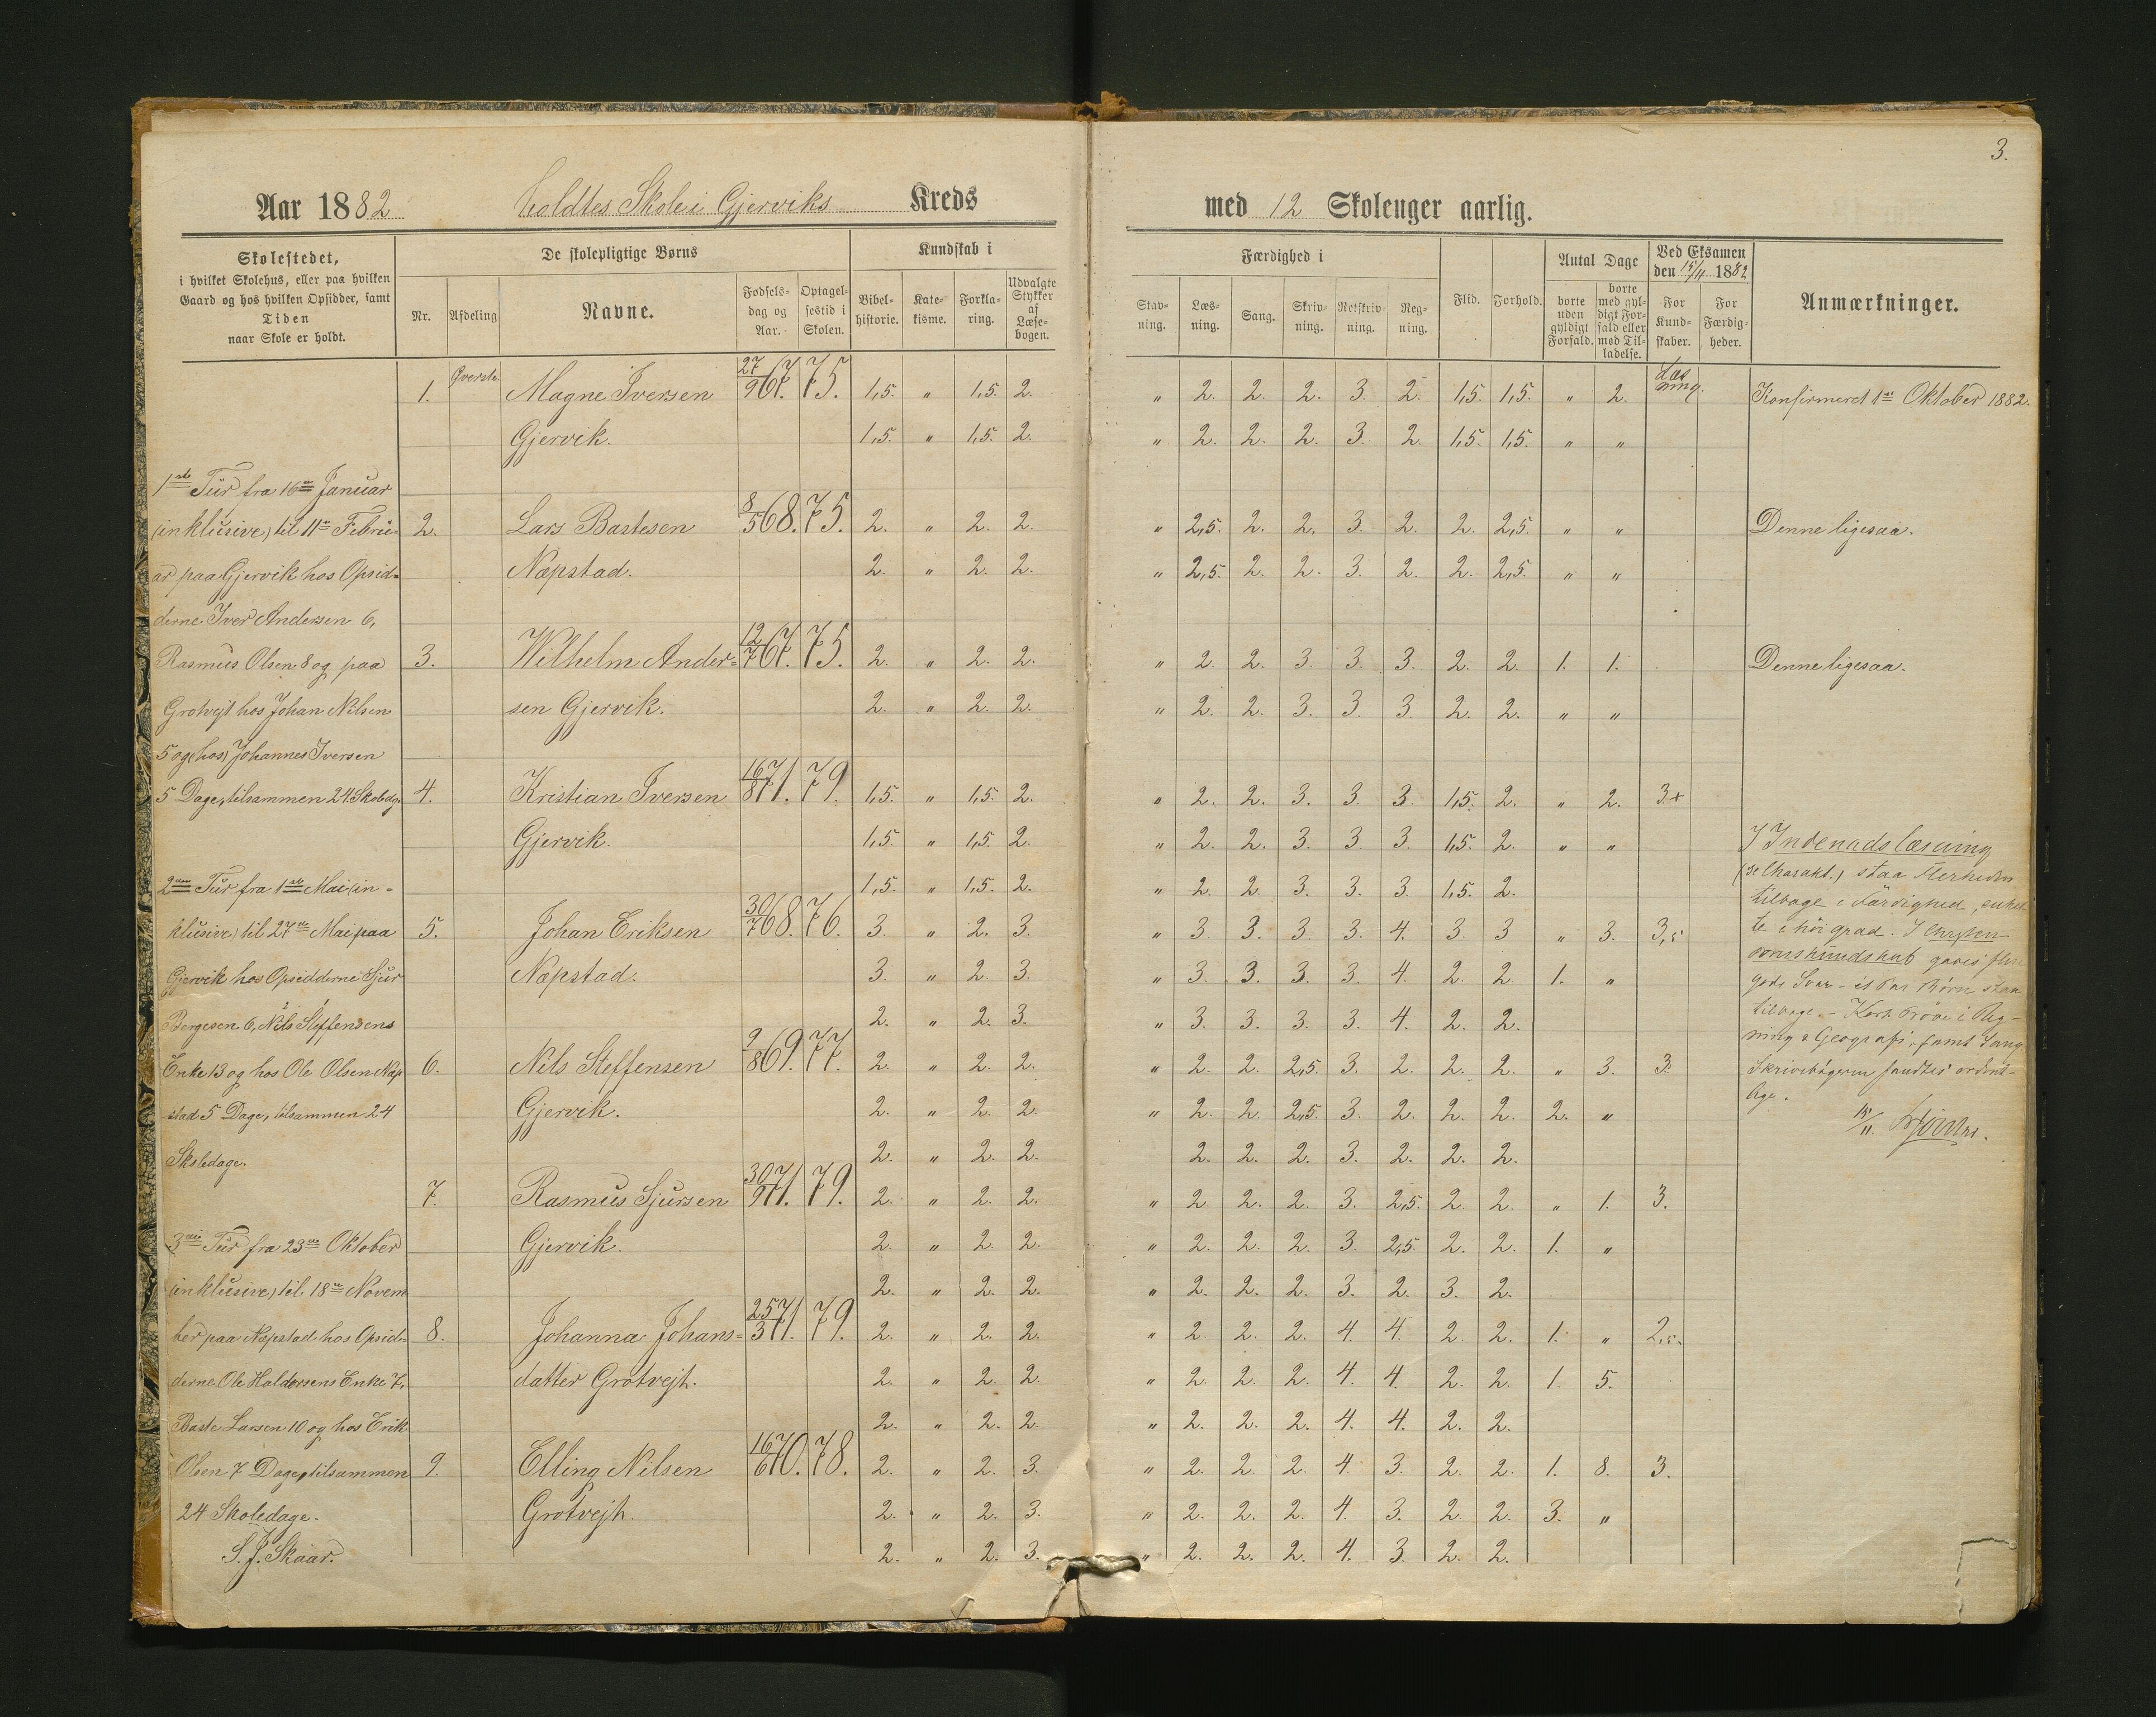 3.
Aar 1882 holdtes Skole i Gjerviks Kreds med 12 Skoleuger aarlig.
Skolestedet,
i hvilket Skolehus, eller paa hvilken
Gaard og hos hvilken Opsidder, samt
Tiden
naar Skole er holdt.
De skolepligtige Børns
Nr. Afdeling Navne. Fødselsdag og Aar. Optagelsestid i Skolen.
Kundskab i
Bibelhistorie. Katekisme. Forklaring. Udvalgte Stykker af Læsebogen.
Færdighed i
Stavning. Læsning. Sang. Skrivning. Retskrivning. Regning. Flid. Forhold.
Antal Dage
borte uden gyldigt Forfald. borte med gyldigt Forfald eller med Tilladelse.
Ved Eksamen
den 15/11 1882
For Kundskaber. For Færdigheder.
Anmærkninger.
1ste Tur fra 16de Januar
(inklusive) til 11te Febru-
ar paa Gjervik hos Opsid-
derne Iver Andersen 6,
Rasmus Olsen 8 og paa
Grotvejt hos Johan Nilsen
5 og (hos) Johannes Iversen
5 Dage, tilsammen 24 Skoledg.
2den Tur fra 1ste Mai (in-
klusive) til 27de Mai paa
Gjervik hos Opsidderne Sjur
Børgesen 6, Nils Steffensens
Enke 13 og hos Ole Olsen Næp
stad 5 Dage, tilsammen 24
Skoledage.
3die Tur fra 23de Oktober
(inklusive) til 18de Novem
ber paa Næpstad hos Opsid-
derne Ole Haldorsens Enke 7,
Baste Larsen 10 og hos Erik
Olsen 7 Dage, tilsammen
24 Skoledage.
S. J. Skaar.
1. Øverste. Magne Iversen 27/9 67. 75. 1,5. " 1,5. 2. " 2. 2. 2. 3. 2. 1,5. 1,5. " 2. Læsning. Konfirmeret 1ste Oktober 1882.
Gjervik. 1,5. " 1,5. 2. " 2. 2. 2. 3. 2. 1,5. 1,5. " "
2. Lars Bastesen 8/5 68. 75. 2. " 2. 2. " 2,5. 2. 2. 3. 2. 2. 2,5. " " Denne ligesaa.
Næpstad. 2. " 2. 2. " 2,5. 2. 2. 3. 2. 2. 2,5. " "
3. Wilhelm Ander= 12/7 67. 75. 2. " 2. 2. " 2. 2. 3. 3. 3. 2. 2. 1. 1. Denne ligesaa.
sen Gjervik. 2. " 2. 2. " 2. 2. 3. 3. 3 2. 2. " "
4. Kristian Iversen 16/8 71. 79. 1,5. " 1,5. 2. " 2. 2. 3. 3. 3. 1,5. 2. " 2. 3+
Gjervik. 1,5. " 1,5. 2. " 2. 2. 3. 3. 3. 1,5. 2. " "
1,5. " 1,5. 2. " 2. 2. 3. 3. 3. 1,5. 2.
5. Johan Eriksen 30/7 68. 76. 3. " 2. 3. " 3. 3. 3. 3. 4. 3. 3 " 3. 3,5
Næpstad. 3. " 2. 3. " 3. 3. 3. 3. 4. 2. 2. 1. "
2. " 2. 3. " 3. 3. 3. 3. 4. 2. 2.
6. Nils Steffensen 9/8 69. 77. 2. " 2. 2. " 2. 2. 2,5. 3. 2. 2. 2. " 3. 3.
Gjervik. 2. " 2. 2. " 2. 2. 2,5. 3. 2. 2. 2. 2. "
2. " 2. 2. 2. 2. 2. 3. 2. 2. 2.
7. Rasmus Sjursen 30/9 71. 79. 2. " 2. 2. " 2. 2. 2. 3. 2,5. 2. 2. " 1. 3.
Gjervik. 2. " 2. 2. " 2. 2. 2. 3. 2,5. 2. 2. 1. "
2. " 2. 2. " 2. 2. 2. 3. 2. 3. 2.
8. Johanna Johans= 25/3 71. 79. 2. " 2. 2. " 2. 2. 2. 4. 4. 2. 2. 1. " 2,5.
datter Grotvejt. 2. " 2. 2. " 2. 2. 2. 4. 4. 2. 2. 1. 5.
2. " 2. 2. " 2. 2. 2. 4. 4. 2. 2.
9. Elling Nilsen 16/6 70. 78. 2. " 2. 3. " 2. 2. 2. 4. 3. 2. 2. 1. 8. 3.
Grotvejt. 2. " 2. 3. " 2. 2. 2. 4. 3. 2. 2. 3. "
2. " 2. 3. " 2. 2. 2. 4. 3. 2. 2.
I Indenadslæsning
(se Charakt.) staa Flerheden
tilbage i Færdighed, enkel
te i høi grad. I Christen
domskundskab gaves flere
gode Svar - et Par Børn staa
tilbage. - Kort Prøve i Reg-
ning & Geografi, samt Sang
Skrivebøgerne fandtes ordent-
lige.
15/11.